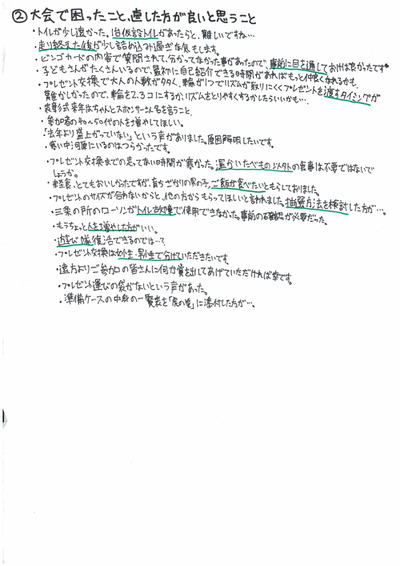 ②大会で困ったこと、直した方が良いと思うこと
・トイレが少し遠かった。1台仮設トイレがあったらと、難しいですね…
・走り終えた後が少し詰め込み過ぎな気もします。
・ビンゴカードの内容で質問されて、分かってなかった事があったので、事前に目を通しておけば良かったです
・子どもさんがたくさんいるので、最初に自己紹介できる時間があればもっと仲良くなれるかも。
・プレゼント交換で大人の人数が多く、輪が1つでリズムが取りにくくプレゼントを渡すタイミングが
難しかったので、輪を2、3コにするか、リズムをとりやすくするかしたらいいかも…
・表彰式 青年はちゃんとスポンサー名を言うこと。
・参加者の40〜50代の人を増やしてほしい。
・「去年より盛り上がっていない」という声がありました。原因解明したいです。
・寒い中、河原にいるのはつらかったです。
・プレゼント交換までの走ってない時間が寒かった。温かいたべもの
の食事は不要ではないで
しょうか。
・軽食、とてもおいしかったですが、育ちざかりの男の子、ご飯が食べたいともらしておりました。
・プレゼントのサイズが合わないからと、他の方からもらってほしいと言われました。抽選方法を検討した方が…。
・三条の所のローソンがトイレ故障で使用できなかった。事前の確認が必要だった。
・もうちょっと人を増やした方がいい。
・遊び隊復活できるのでは…？
・プレゼント交換は女性・男性で分けていただきたいです。
・遠方よりご参加の皆さんに何か賞を出してあげていただければ幸です。
・プレゼント選びの袋がないという声があった。
・準備ケースの中身の一覧表を「虎の巻」に添付した方が…。